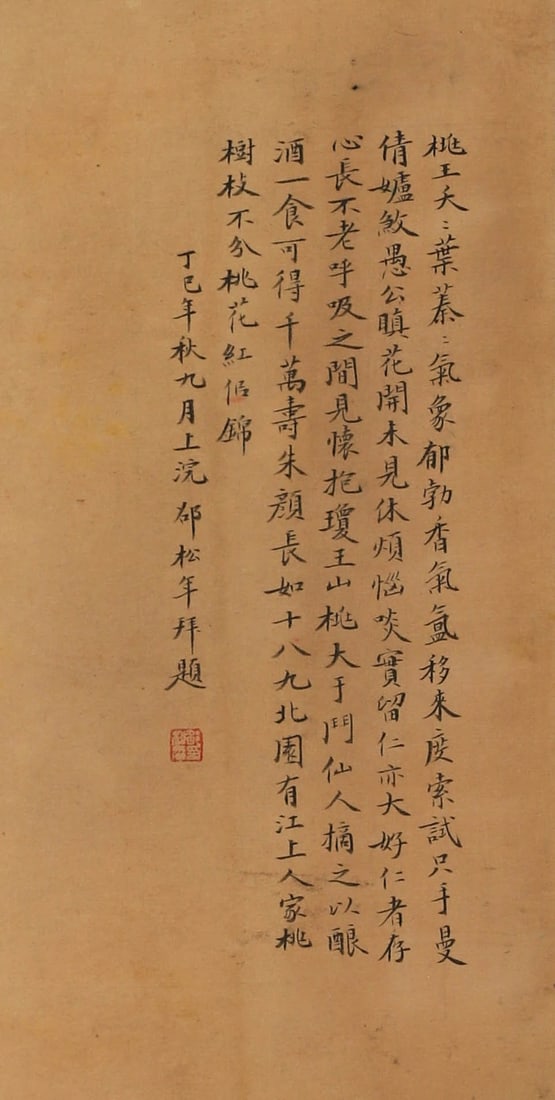 桃王夭〻葉蓁〻氣象郁勃香氣氳移來度索試只手曼
倩嬧敥愚公瞋花開未見休煩惱啖實留仁亦大好仁者存
心長不老呼吸之間見懷抱瓊王山桃大于鬥仙人摘之以釀
酒一食可得千萬壽朱顏長如十八九北園有江上人家桃
樹枝不分桃花紅佀錦
丁巳年秋九月上浣邵松年拜題